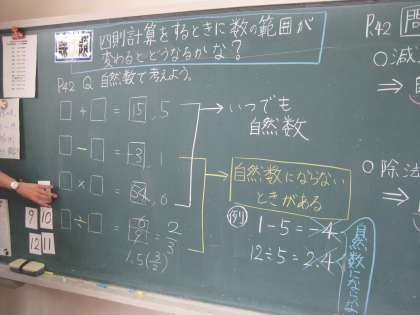 四則計算をするときに数の範囲が
変わるとどうなるかな?
P.42 Q 自然数で考えよう。
□ + □ = 15, 5
□ − □ = 3, 1
□ × □ =
□ ÷ □ = = 2/3
1.5 (3/2)
いつでも
自然数
自然数にならない
ときがある
例 1−5=−4
12÷5=2.4
自然数にならな
9 10
12 11
P.42 問
○減
⇒
○除法
⇒